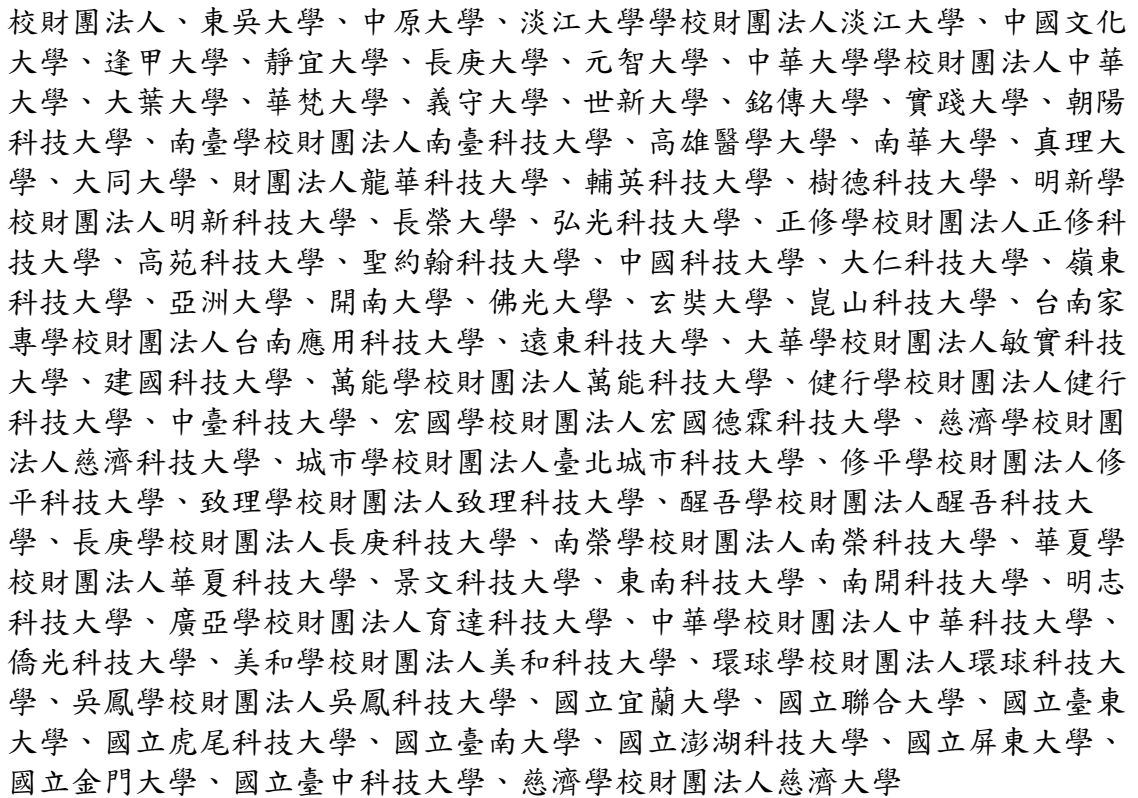 校財團法人、東吳大學、中原大學、淡江大學學校財團法人淡江大學、中國文化
大學、逢甲大學、靜宜大學、長庚大學、元智大學、中華大學學校財團法人中華
大學、大葉大學、華梵大學、義守大學、世新大學、銘傳大學、實踐大學、朝陽
科技大學、南臺學校財團法人南臺科技大學、高雄醫學大學、南華大學、真理大
學、大同大學、財團法人龍華科技大學、輔英科技大學、樹德科技大學、明新學
校財團法人明新科技大學、長榮大學、弘光科技大學、正修學校財團法人正修科
技大學、高苑科技大學、聖約翰科技大學、中國科技大學、大仁科技大學、嶺東
科技大學、亞洲大學、開南大學、佛光大學、玄奘大學、崑山科技大學、台南家
專學校財團法人台南應用科技大學、遠東科技大學、大華學校財團法人敏實科技
大學、建國科技大學、萬能學校財團法人萬能科技大學、健行學校財團法人健行
科技大學、中臺科技大學、宏國學校財團法人宏國德霖科技大學、慈濟學校財團
法人慈濟科技大學、城市學校財團法人臺北城市科技大學、修平學校財團法人修
平科技大學、致理學校財團法人致理科技大學、醒吾學校財團法人醒吾科技大
學、長庚學校財團法人長庚科技大學、南榮學校財團法人南榮科技大學、華夏學
校財團法人華夏科技大學、景文科技大學、東南科技大學、南開科技大學、明志
科技大學、廣亞學校財團法人育達科技大學、中華學校財團法人中華科技大學、
僑光科技大學、美和學校財團法人美和科技大學、環球學校財團法人環球科技大
學、吳鳳學校財團法人吳鳳科技大學、國立宜蘭大學、國立聯合大學、國立臺東
大學、國立虎尾科技大學、國立臺南大學、國立澎湖科技大學、國立屏東大學、
國立金門大學、國立臺中科技大學、慈濟學校財團法人慈濟大學